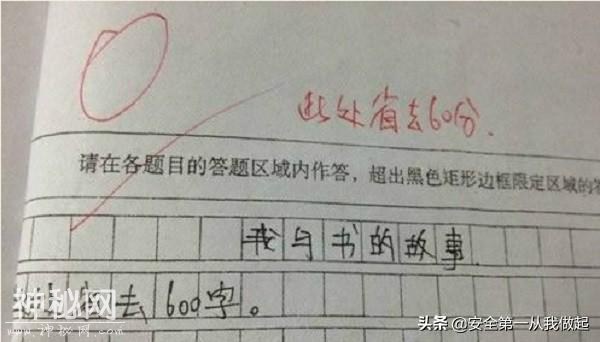 此处省去60分.
请在各题目的答题区域内作答，超出黑色矩形边框限定区域的答
我与书的故事.
去1600字。
神秘网
www.shenmiw.com
头条 @安全第一从我做起